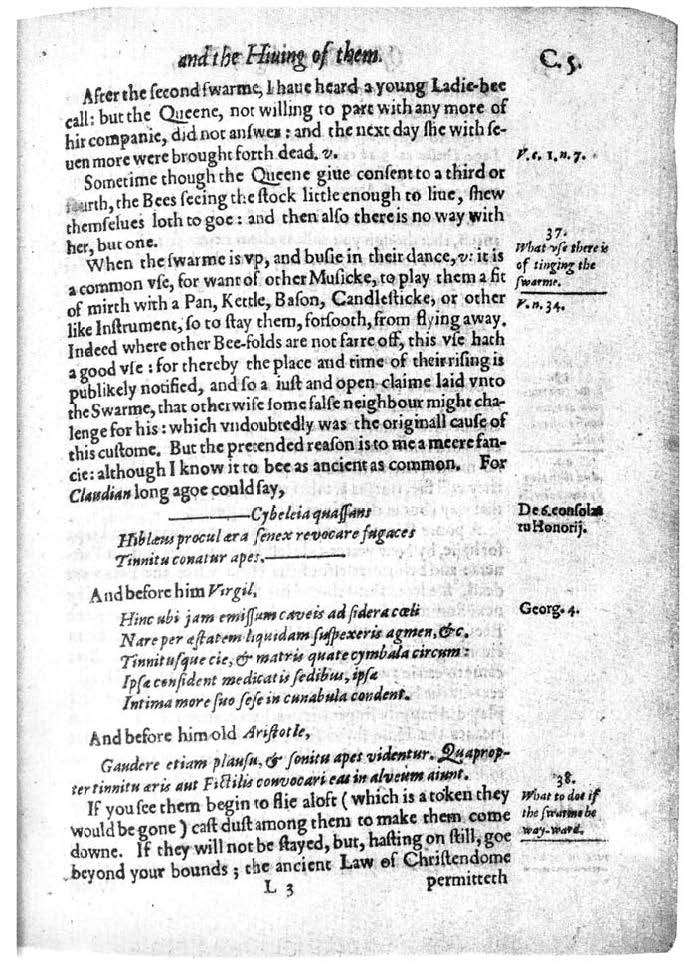 and the Hiuing of them.
C. 5.
After the second swarme, I haue heard a young Ladie-bee
call: but the Queene, not willing to part with any more of
hir companie, did not answer: and the next day she with se-
uen more were brought forth dead. v.
V. c. 1. n. 7.
Sometime though the Queene giue consent to a third or
fourth, the Bees seeing the stock little enough to liue, shew
themselues loth to goe: and then also there is no way with
her, but one.
37.
What vse there is
of tinging the
swarme.
When the swarme is vp, and busie in their dance, v: it is
a common vse, for want of other Musicke, to play them a fit
of mirth with a Pan, Kettle, Bason, Candlesticke, or other
like Instrument, so to stay them, forsooth, from flying away.
V. n. 34.
Indeed where other Bee-folds are not farre off, this vse hath
a good vse: for thereby the place and time of their rising is
publikely notified, and so a iust and open claime laid vnto
the Swarme, that otherwise some false neighbour might cha-
lenge for his: which vndoubtedly was the originall cause of
this custome. But the pretended reason is to me a meere fan-
cie: although I know it to bee as ancient as common. For
Claudian long agoe could say,
———Cybeleia quassans
Hiblæus procul æra senex revocare fugaces
Tinnitu conatur apes.———
De 6. consola
tu Honorij.
And before him Virgil,
Hinc ubi jam emissum caveis ad sidera cœli
Nare per æstatem liquidam suspexeris agmen, &c.
Tinnitusque cie, & matris quate cymbala circum:
Ipsæ consident medicatis sedibus, ipsæ
Intima more suo sese in cunabula condent.
Georg. 4.
And before him old Aristotle,
Gaudere etiam plausu, & sonitu apes videntur. Quaprop-
ter tinnitu æris aut Fictilis convocari eas in alveum aiunt.
38.
What to doe if
the swarme be
way-ward.
If you see them begin to flie aloft (which is a token they
would be gone) cast dust among them to make them come
downe. If they will not be stayed, but, hasting on still, goe
beyond your bounds; the ancient Law of Christendome
L 3
permitteth